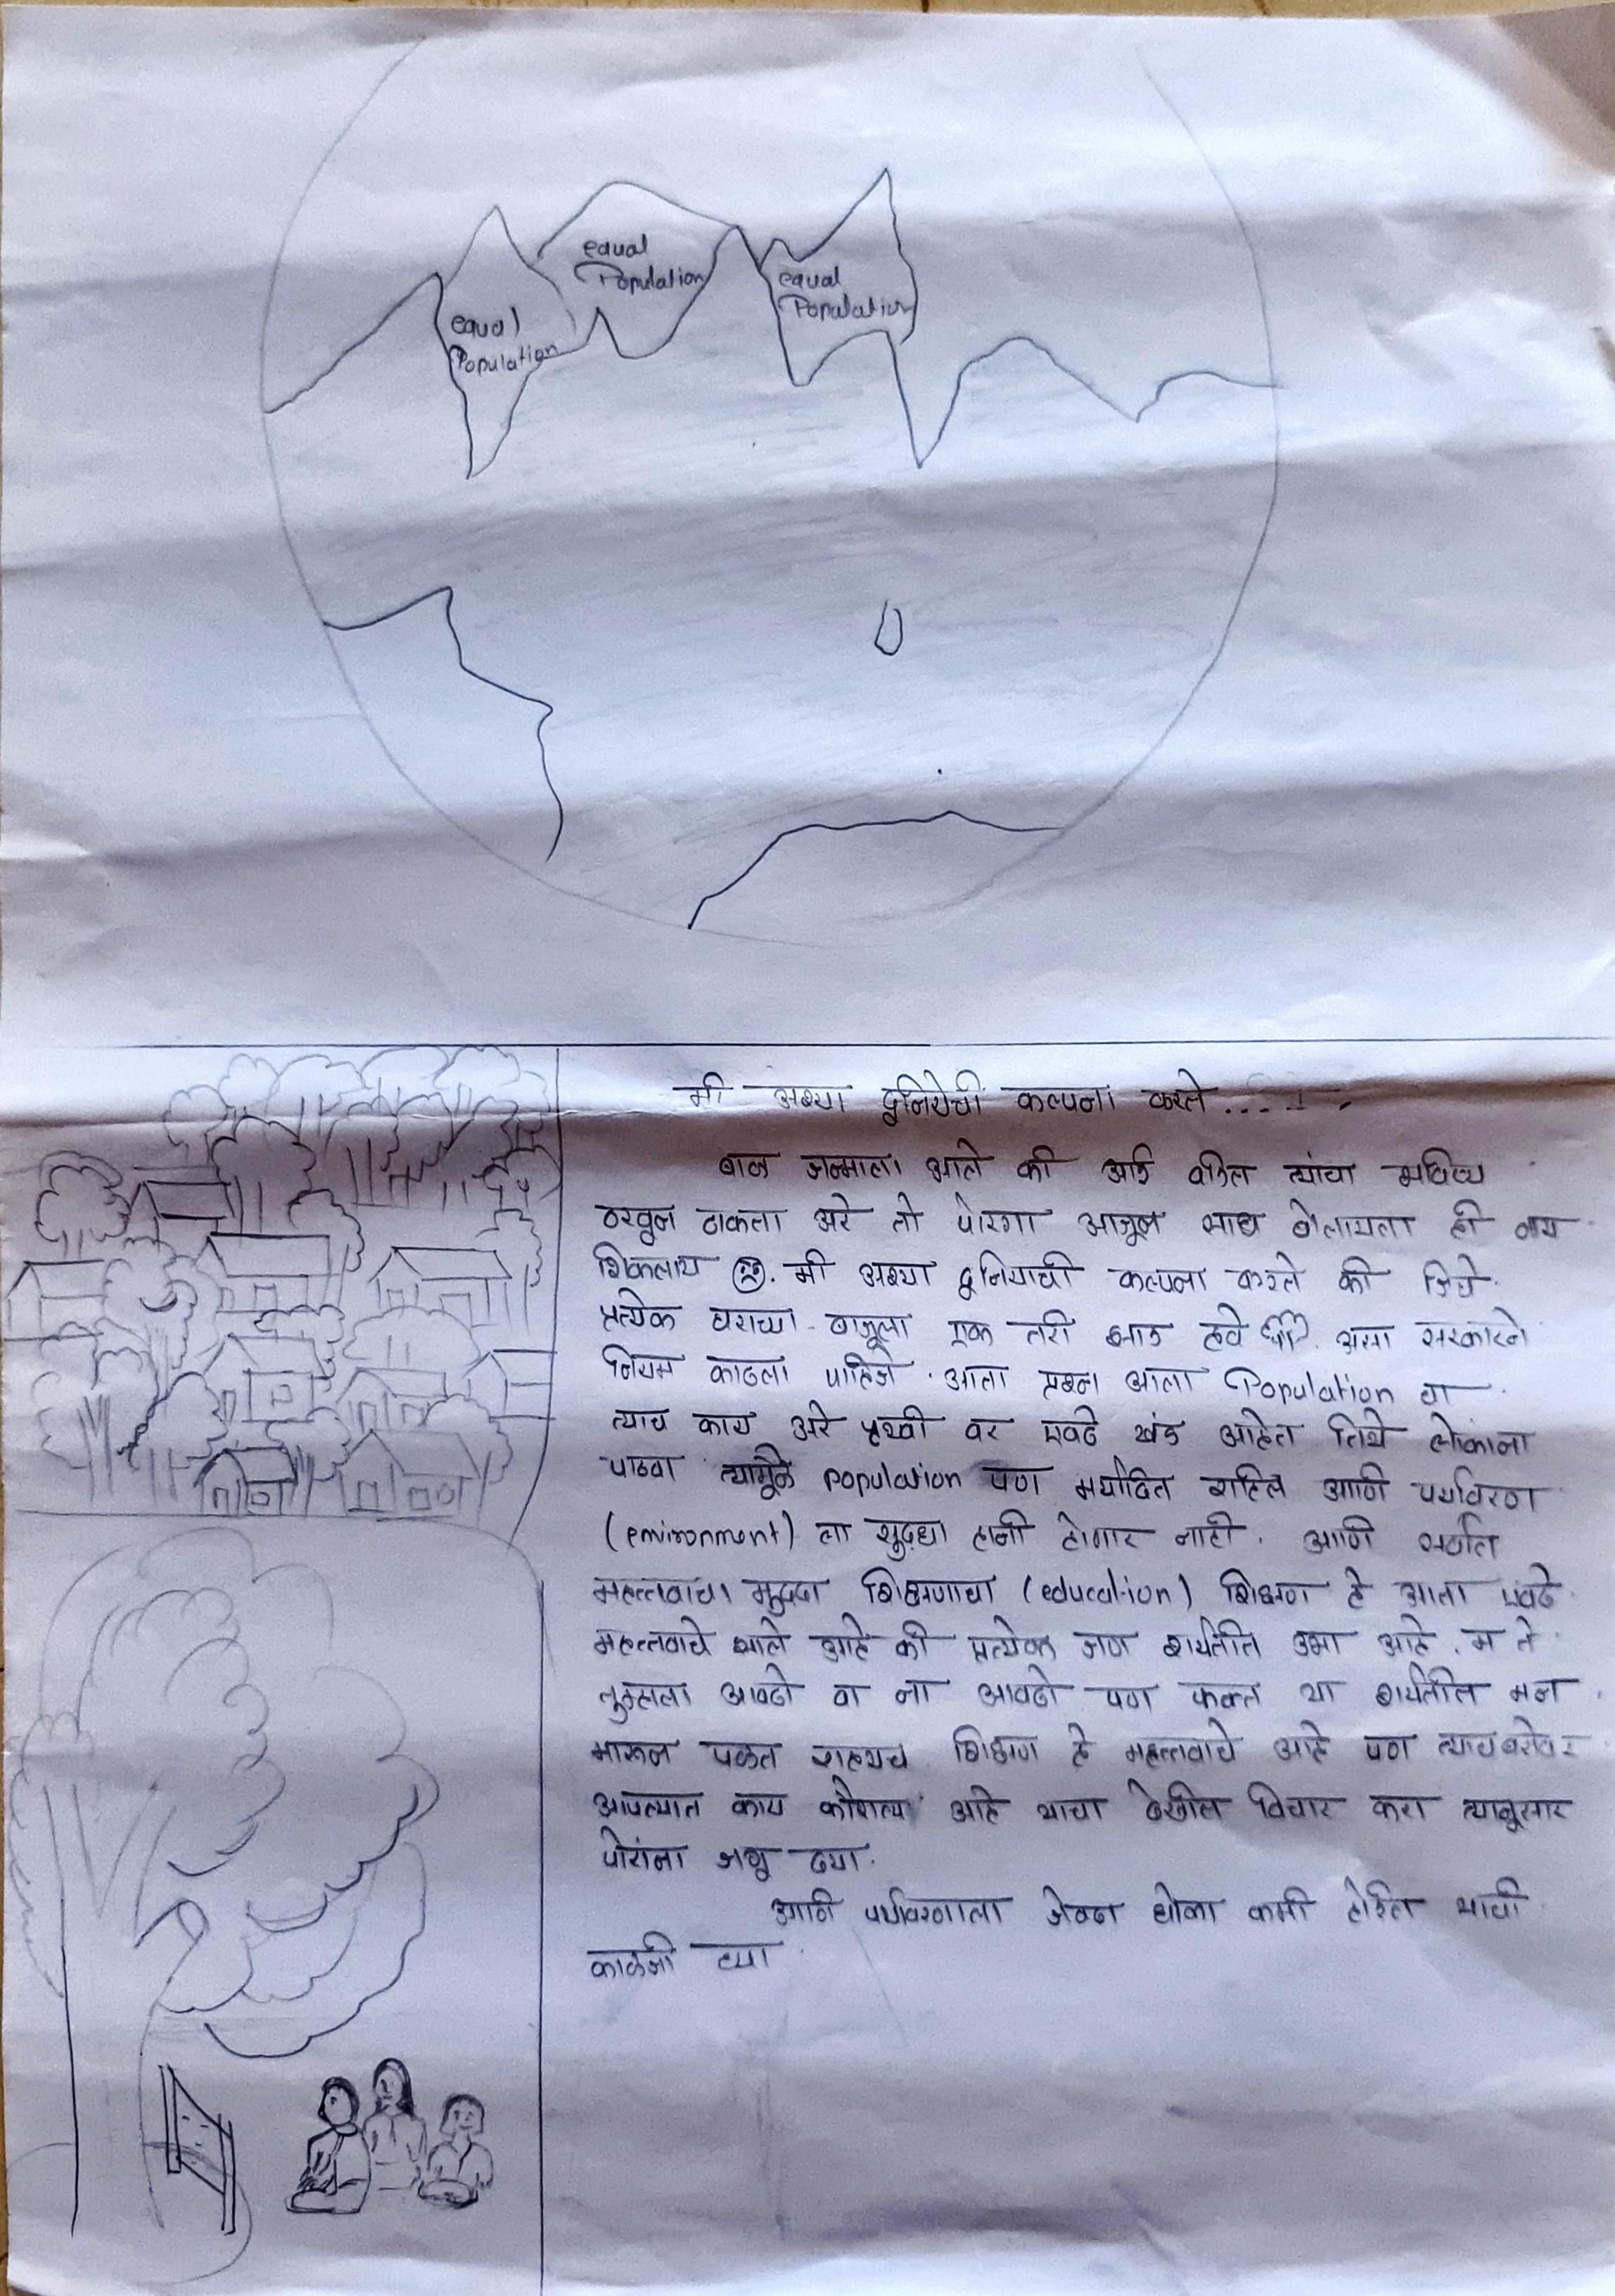 equal
Population
equal
Population
equal
Population
मी अश्या दुनियेची कल्पना करते.....
बाळ जन्माला आले की आई वडिल त्यांचा भविष्य
ठरवून टाकता अरे तो पोरगा आजून साध बोलायला ही नाय
शिकलाय. मी अश्या दुनियाची कल्पना करते की जिथे
प्रत्येक घराच्या बाजूला एक तरी झाड हवे असा सरकारने
नियम काढला पाहिजे. आता प्रश्न आला Population चा
त्याच काय अरे पृथ्वी वर एवढे खंड आहेत तिथे लोकांना
पाठवा त्यामूळे population पण मर्यादित राहिल आणि पर्यावरण
(environment) ला सुद्धा हानी होणार नाही. आणि सर्वात
महत्त्वाचा मुद्दा शिक्षणाचा (education) शिक्षण हे आता एवढे
महत्त्वाचे झाले आहे की प्रत्येक जण शर्यतीत उभा आहे. म ते
तुम्हाला आवढो वा ना आवढो पण फक्त या शर्यतीत मन
मारून पळत राहायच शिक्षण हे महत्त्वाचे आहे पण त्याचबरोबर
आपल्यात काय कौशल्य आहे याचा देखील विचार करा त्यानूसार
पोरांना जगू द्या.
आणि पर्यावरणाला जेवढा धोका कमी होईल याची
काळजी घ्या.